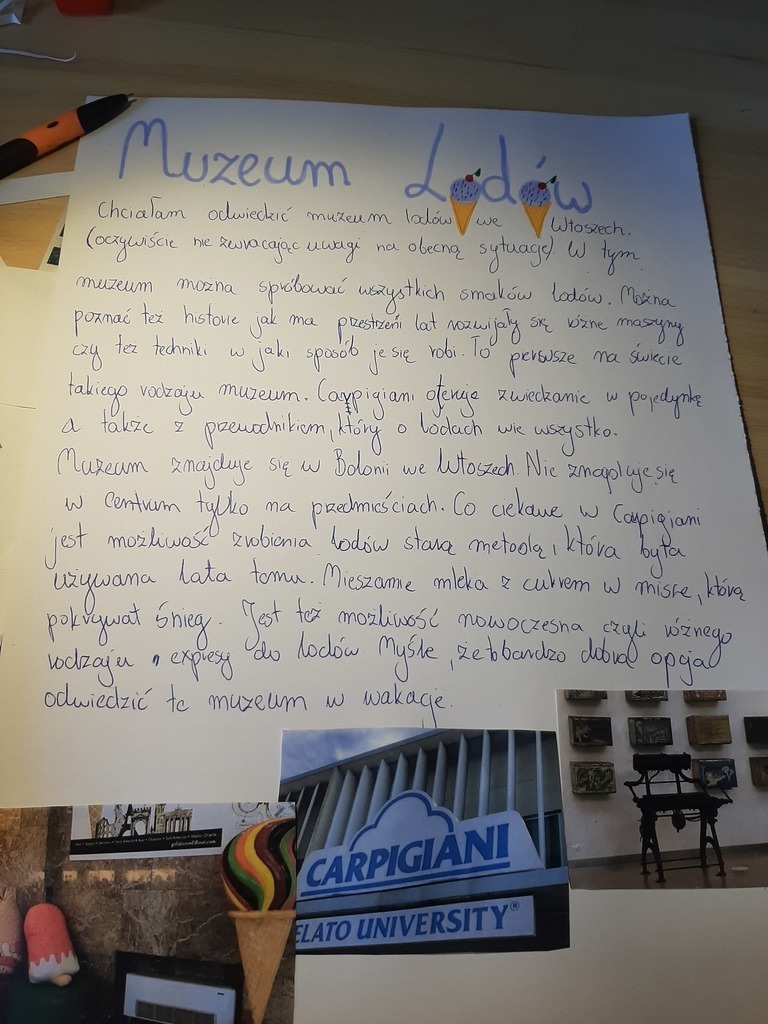 Muzeum Lodów
Chciałam odwiedzić muzeum lodów we Włoszech.
(oczywiście nie zwracając uwagi na obecną sytuację). W tym
muzeum można spróbować wszystkich smaków lodów. Można
poznać też historie jak na przestrzeni lat rozwijały się różne maszyny
czy też techniki w jaki sposób je się robi. To pierwsze na świecie
takiego rodzaju muzeum. Carpigiani oferuje zwiedzanie w pojedynkę
a także z przewodnikiem, który o lodach wie wszystko.
Muzeum znajduje się w Bolonii we Włoszech. Nie znajduje się
w centrum tylko na przedmieściach. Co ciekawe w Carpigiani
jest możliwość zrobienia lodów starą metodą, która była
używana lata temu. Mieszanie mleka z cukrem w misce, którą
pokrywał śnieg. Jest też możliwość nowoczesna czyli różnego
rodzaju expresy do lodów Myślę, że bardzo dobra opcja
odwiedzić te muzeum w wakacje.
CARPIGIANI
ELATO UNIVERSITY®